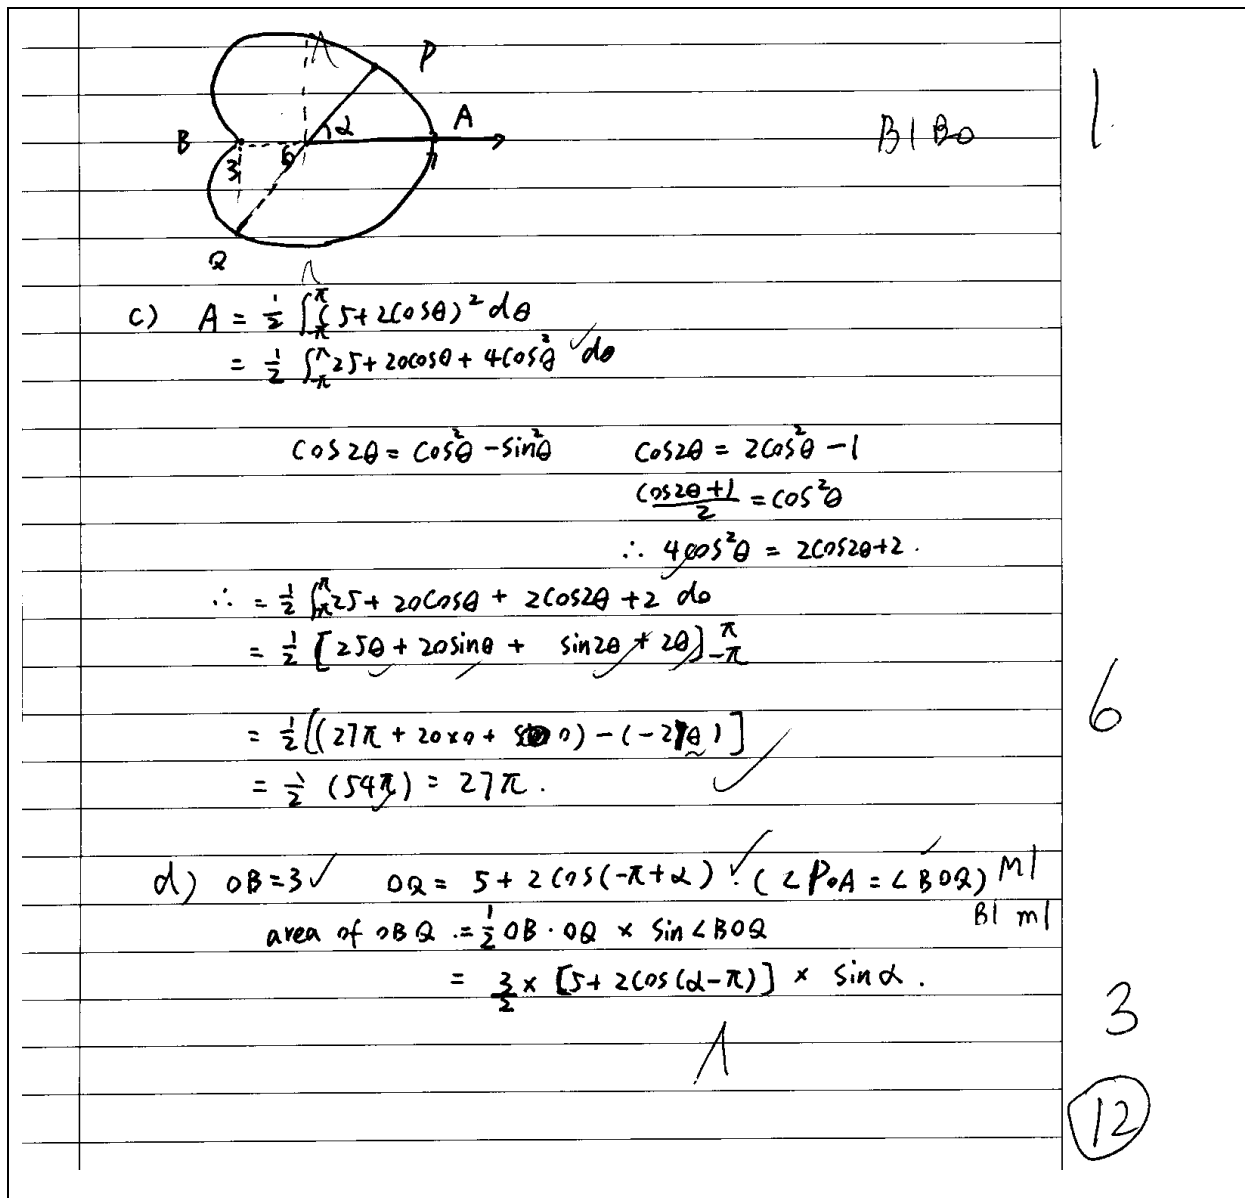 P
A
B
α
3
7
Q
B1 B0
1
c) A = ½ ∫_{-π}^{π} (5+2cosθ)² dθ
= ½ ∫_{-π}^{π} 25+20cosθ + 4cos²θ dθ ✓
cos2θ = cos²θ - sin²θ cos2θ = 2cos²θ - 1
(cos2θ+1)/2 = cos²θ
∴ 4cos²θ = 2cos2θ+2.
∴ = ½ ∫_{-π}^{π} 25+ 20cosθ + 2cos2θ +2 dθ
= ½ [25θ + 20sinθ + sin2θ + 2θ]_{-π}^{π}
6
= ½ [(27π + 20×0 + 0) - (-27θ)]
= ½ (54π) = 27π. ✓
d) OB=3 ✓ OQ = 5+2cos(-π+α) ✓. (∠POA = ∠BOQ) ✓ M1
B1 m1
area of OBQ = ½ OB · OQ × sin∠BOQ
= 3/2 × [5+ 2cos(α-π)] × sinα.
3
12